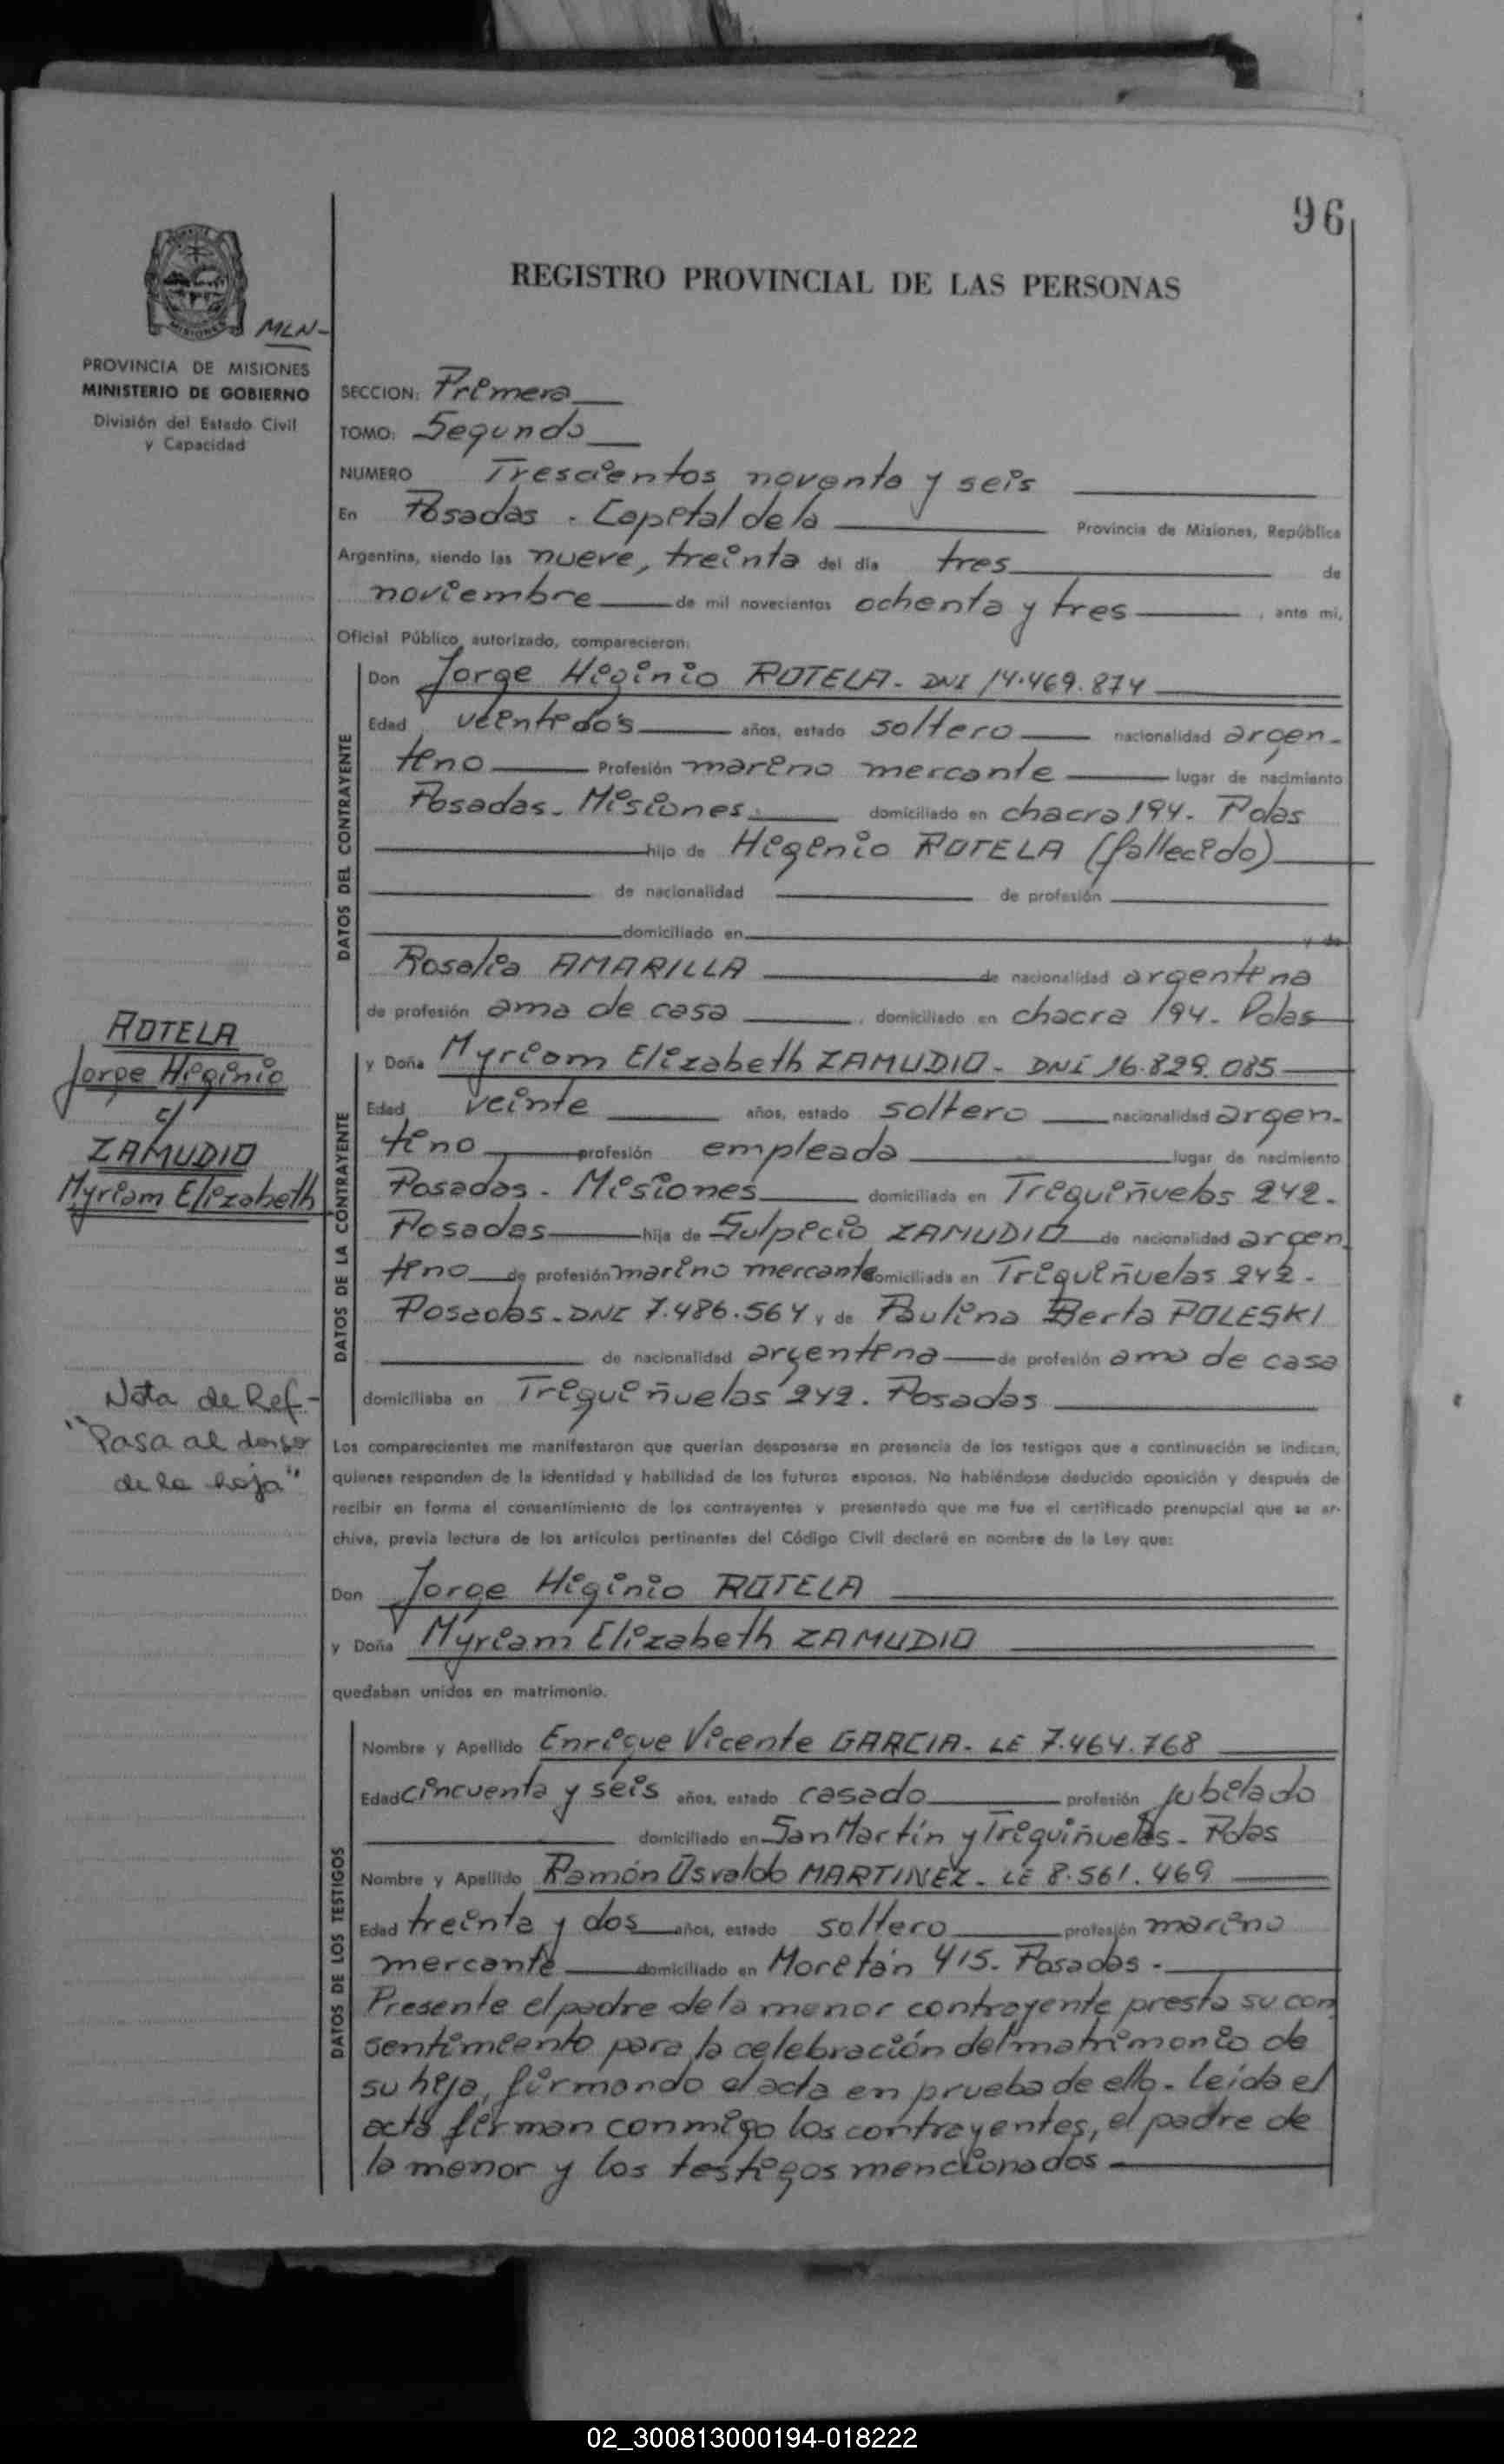 96
REGISTRO PROVINCIAL DE LAS PERSONAS
MISIONES
MLN-
PROVINCIA DE MISIONES
MINISTERIO DE GOBIERNO
División del Estado Civil
y Capacidad
SECCION: Primera
TOMO: Segundo
NUMERO Trescientos noventa y seis
En Posadas - Capital de la Provincia de Misiones, República
Argentina, siendo las nueve, treinta del día tres de
noviembre de mil novecientos ochenta y tres, ante mi,
Oficial Público autorizado, comparecieron:
DATOS DEL CONTRAYENTE
Don Jorge Higinio ROTELA - DNI 14.469.874
Edad veintidós años, estado soltero nacionalidad argen-
tino Profesión marino mercante lugar de nacimiento
Posadas - Misiones. domiciliado en chacra 194. Pdas
hijo de Higinio ROTELA (fallecido)
de nacionalidad de profesión
domiciliado en y de
Rosalia AMARILLA de nacionalidad argentina
de profesión ama de casa, domiciliado en chacra 194. Pdas
ROTELA
Jorge Higinio
c/
ZAMUDIO
Myriam Elizabeth
DATOS DE LA CONTRAYENTE
y Doña Myriam Elizabeth ZAMUDIO - DNI 16.829.085
Edad veinte años, estado soltero nacionalidad argen-
tino profesión empleada lugar de nacimiento
Posadas - Misiones domiciliada en Triquiñuelas 242.
Posadas hija de Sulpicio ZAMUDIO de nacionalidad argen
tino de profesión marino mercante domiciliada en Triquiñuelas 242.
Posadas - DNI 7.486.564 y de Paulina Berta POLESKI
de nacionalidad argentina de profesión ama de casa
domiciliaba en Triquiñuelas 242. Posadas
Nota de Ref.-
"Pasa al dorso
de la hoja"
Los comparecientes me manifestaron que querían desposarse en presencia de los testigos que a continuación se indican,
quienes responden de la identidad y habilidad de los futuros esposos. No habiéndose deducido oposición y después de
recibir en forma el consentimiento de los contrayentes y presentado que me fue el certificado prenupcial que se ar-
chiva, previa lectura de los artículos pertinentes del Código Civil declaré en nombre de la Ley que:
Don Jorge Higinio ROTELA
y Doña Myriam Elizabeth ZAMUDIO
quedaban unidos en matrimonio.
DATOS DE LOS TESTIGOS
Nombre y Apellido Enrique Vicente GARCIA - LE 7.464.768
Edad cincuenta y seis años, estado casado profesión jubilado
domiciliado en San Martín y Triquiñuelas - Pdas
Nombre y Apellido Ramón Osvaldo MARTINEZ - LE 8.561.469
Edad treinta y dos años, estado soltero profesión marino
mercante domiciliado en Moretán 415. Posadas -
Presente el padre de la menor contrayente presta su con
sentimiento para la celebración del matrimonio de
su hija, firmando el acta en prueba de ello. leída el
acta firman conmigo los contrayentes, el padre de
la menor y los testigos mencionados
02_300813000194-018222